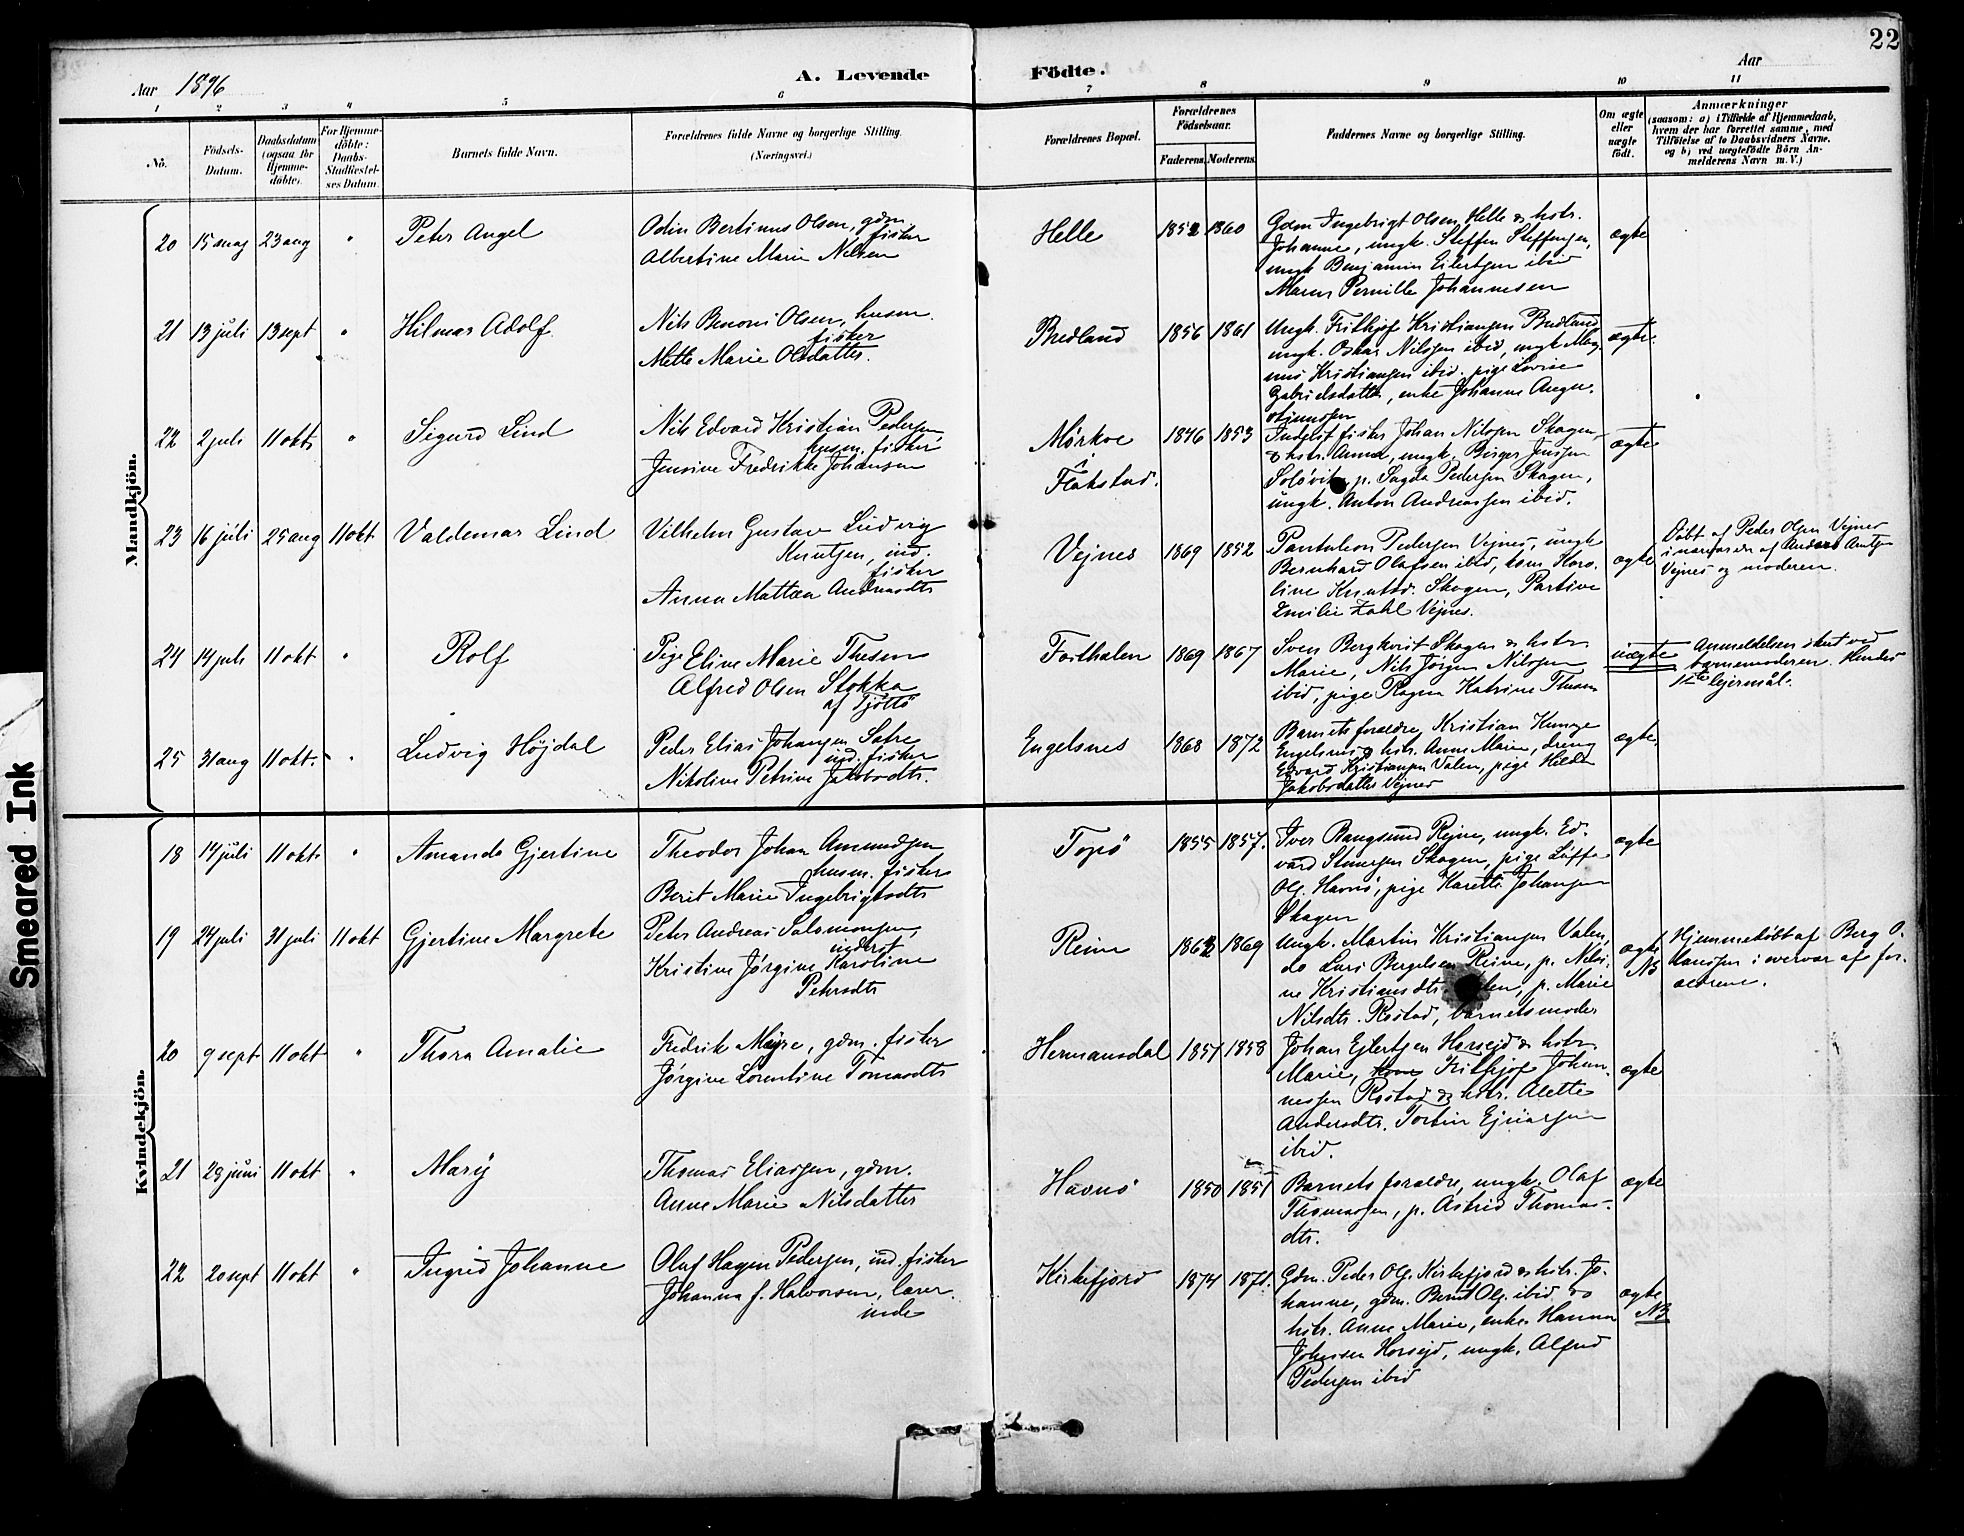 22
Aar 1896
A. Levende Födte.
Aar
1 2 3 4 5 6 7 8 9 10 11
No.
Födsels-Datum.
Daabsdatum (ogsaa for Hjemme-döbte).
For Hjemme-döbte: Daabs-Stadfæstel-ses Datum.
Barnets fulde Navn.
Forældrenes fulde Navne og borgerlige Stilling.
(Næringsvei.)
Forældrenes Bopæl.
Forældrenes Födselsaar.
Faderens. Moderens.
Faddernes Navne og borgerlige Stilling.
Om ægte eller uægte födt.
Anmærkninger
(saasom: a) i Tilfælde af Hjemmedaab,
hvem der har forrettet samme, med
Tilföielse af to Daabsvidners Navne.
og b) ved uægtefödte Börn An-
melderens Navn m. V.)
Mandkjön.
20 15 mag 23 aug " Peter Angel
Odin Bertinus Olsen, gdm.
fisker
Albertine Marie Nilsen
Helle 1852 1860
Gdm Ingebrigt Olsen Helle & hstr.
Johanne, ungk. Steffen Steffensen,
ungk Benjamin Eilertsen ibid
Maren Pernille Johannesen
ægte
21 13 juli 13 sept " Hilmar Adolf
Nils Benoni Olsen, husm.
fisker
Mette Marie Olsdatter.
Bredland 1856 1861
Ungk. Frithjof Kristiansen Bredland
ungk. Oskar Nilssen ibid, ungk Mag-
nus Kristiansen ibid. pige Lovise
Gabrielsdatter, enke Johanne Angu.
ægte.
22 2 juli 11 okt " Sigurd Lind
Nils Edvard Kristian Pedersen
husm. fisker
Jensine Fredrikke Johansen
Mørkve i Flakstad. 1846 1853
Inderst fisker Johan Nilssen Skagen,
& hstr. Anna, ungk. Birger Jenssen
p. Sagda Pedersen Skagen,
ungk. Anton Andreassen ibid.
ægte
23 16 juli 25 aug 11 okt Valdemar Lind
Vilhelm Gustav Ludvig
Knutsen, ind.
fisker
Anna Mattea Andreasdtr
Vejnes 1869 1852
Pantaleon Pedersen Vejnes, ungk
Bernhard Olafsen ibid, kone Karo-
line Knutsd. Skagen,
Emilie Zahl Vejnes.
ægte
Døbt af Peder Olsen Vejnes
i nærværelse af Anders
Vejnes og moderen.
24 14 juli 11 okt " Rolf
Pige Eline Marie Thesen
Alfred Olsen Stokka
af Tjøtto
Forthalen 1869 1867
Sven Bergkvist Skagen & hstr
Marie, Nils Jørgen Nilssen
ibid, pige Ragna Katrine Thesen
uægte
Anmeldelsen sket ved
barnemoderen. Hendes
1ste lejermål.
25 31 aug 11 okt. " Ludvig Højdal
Peder Elias Johansen Sætre
ind. fisker
Nikoline Petrine Jakobsdtr.
Engelsnes 1868 1872
Barnets forældre, Kristian Kunge
Engelsnes & hstr. Anne Marie, dreng
Edvard Kristiansen Valen, pige Hilda
Jakobsdatter Vejnes
ægte.
Kvindekjön.
18 14 juli 11 okt. " Amanda Gjertine
Theodor Johan Amundsen
husm. fisker
Berit Marie Ingebrigtsdtr
Topö 1855 1857.
Iver Bangsund Rejne, ungk. Ed-
vard Skagen, pige
Ols. Havnö, pige Johansen
Skagen
ægte
19 24 juli 31 juli 11 okt Gjertine Margrete
Peter Andreas Salomonsen,
inderst
Kristine Jørgine Karoline
Petersdtr
Reine 1862 1869
Ungk. Martin Kristiansen Valen,
do Lars Bergelsen Reine, p. Nili-
ne Kristiansdtr. p. Marie
Nilsdtr. Rostad, barnets moder
ægte
NB
Hjemmedøbt af Berg O.
Hanssen i overvær af for-
ældrene.
20 9 sept 11 okt " Thora Amalie
Fredrik Myre, gdm. fisker
Jørgine Lorentine Tomasdtr
Hermansdal 1851 1858
Johan Ejlertsen Horsejd & hstr.
Marie, Frithjof Johan-
nessen Rostad & hstr. Alette
Andersdtr. Ejnarsen
ibid.
ægte
21 29 juni 11 okt " Mary
Thomas Eliassen, gdm.
Anne Marie Nilsdatter
Havnö 1850 1851
Barnets forældre, ungk. Olaf
Thomassen, p. Astrid Thomas-
dtr.
ægte
22 20 sept 11 okt " Ingrid Johanne
Olaf Hagen Pedersen, ind. fisker
Johanna f. Halvorsen, lærer-
inde
Kirkefjord 1874 1871.
Gdm. Peder Ols. Kirkefjord & hstr. Jo-
hanne, gdm. Bernt Ols. ibid &
hstr. Anne Marie, enke Hanna
Johnsen Horsejd, ungk. Alfred
Pedersen ibid
ægte
NB
Smeared Ink